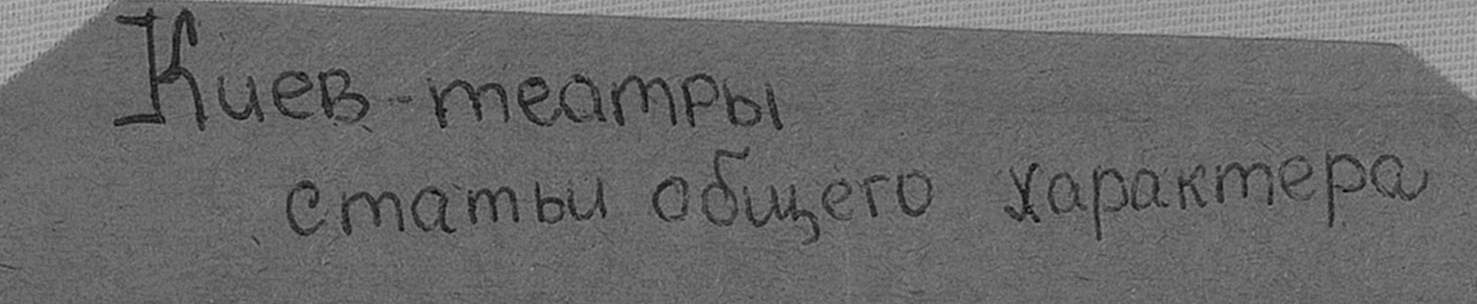 Киев - театры
статьи общего характера